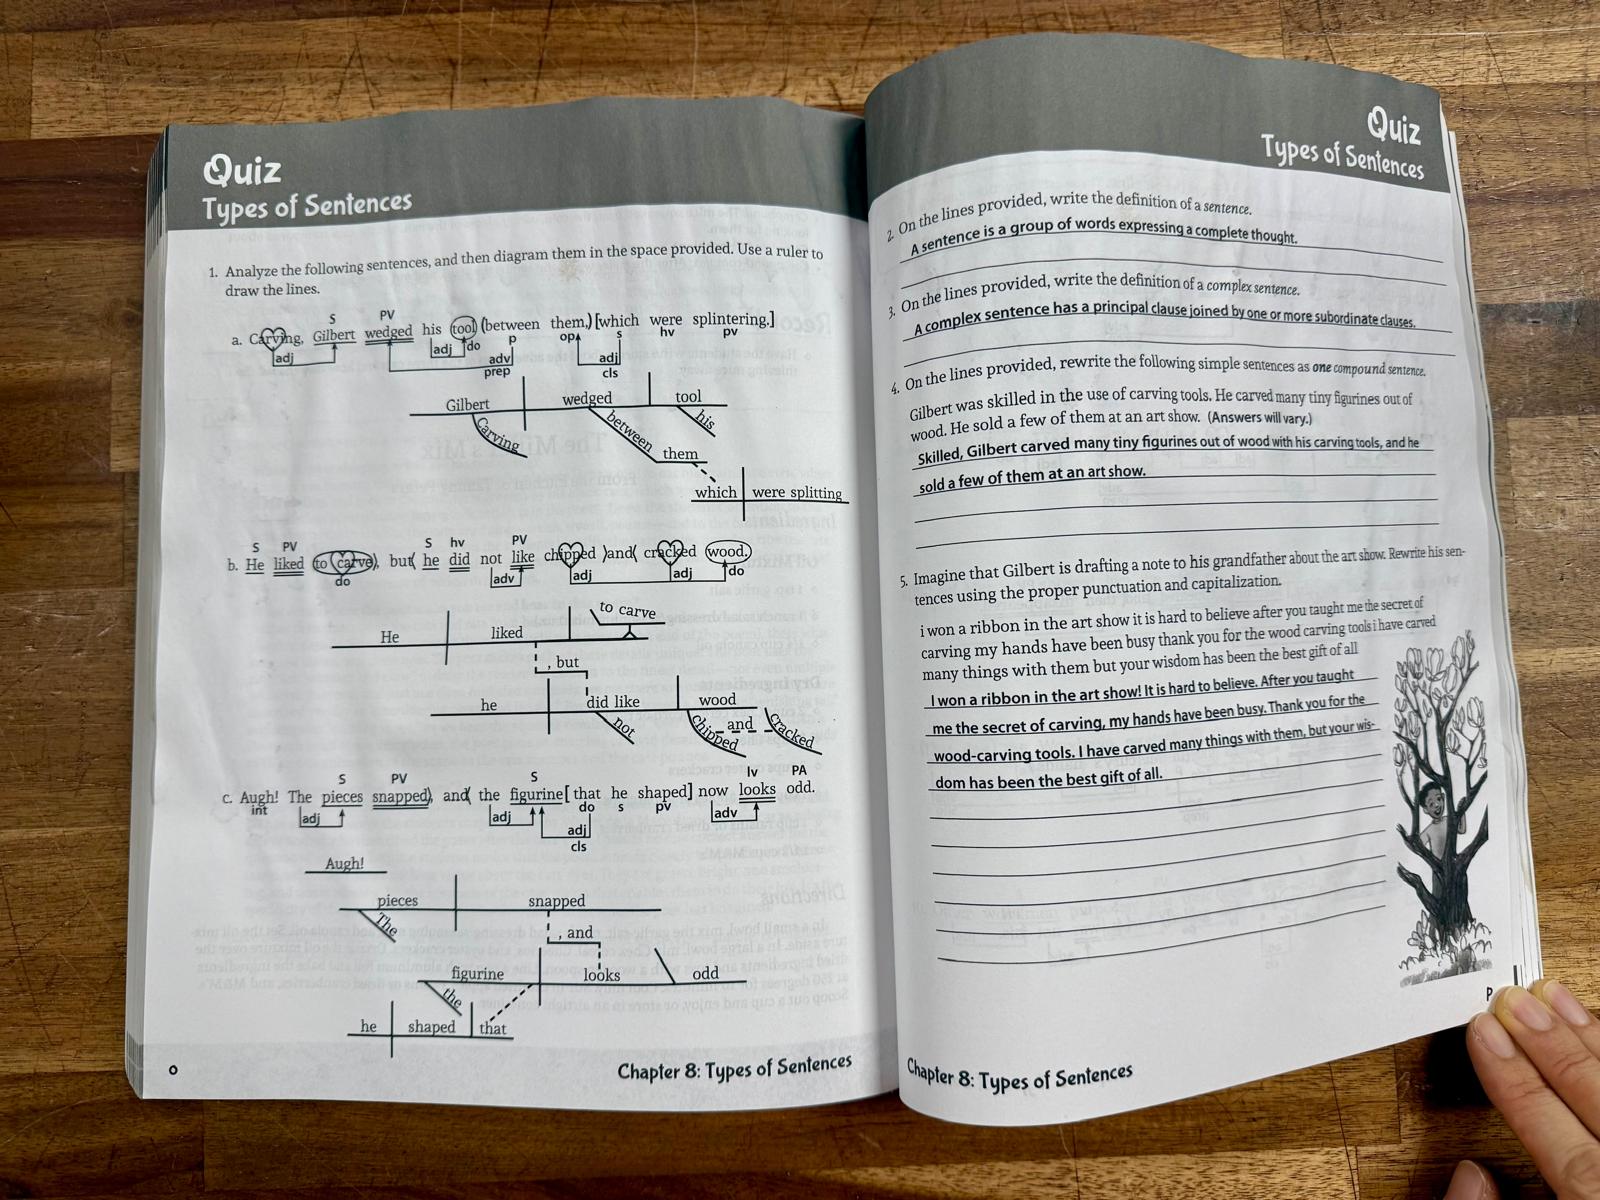 Quiz
Types of Sentences
1. Analyze the following sentences, and then diagram them in the space provided. Use a ruler to
draw the lines.
S PV
a. Carving, Gilbert wedged his tool (between them,) [which were splintering.]
adj adj do p op s hv pv
adv adj
prep cls
Gilbert wedged tool
Carving between his
them
which were splitting
S PV S hv PV
b. He liked (to carve), but( he did not like chipped )and( cracked wood.)
do adv adj adj do
to carve
He liked
, but
he did like wood
not chipped and cracked
S PV S lv PA
c. Augh! The pieces snapped), and( the figurine [ that he shaped] now looks odd.
int adj adj do s pv adv
adj
cls
Augh!
pieces snapped
The
, and
figurine looks odd
the
he shaped that
o
Chapter 8: Types of Sentences
Quiz
Types of Sentences
2. On the lines provided, write the definition of a sentence.
A sentence is a group of words expressing a complete thought.
3. On the lines provided, write the definition of a complex sentence.
A complex sentence has a principal clause joined by one or more subordinate clauses.
4. On the lines provided, rewrite the following simple sentences as one compound sentence.
Gilbert was skilled in the use of carving tools. He carved many tiny figurines out of
wood. He sold a few of them at an art show. (Answers will vary.)
Skilled, Gilbert carved many tiny figurines out of wood with his carving tools, and he
sold a few of them at an art show.
5. Imagine that Gilbert is drafting a note to his grandfather about the art show. Rewrite his sen-
tences using the proper punctuation and capitalization.
i won a ribbon in the art show it is hard to believe after you taught me the secret of
carving my hands have been busy thank you for the wood carving tools i have carved
many things with them but your wisdom has been the best gift of all
I won a ribbon in the art show! It is hard to believe. After you taught
me the secret of carving, my hands have been busy. Thank you for the
wood-carving tools. I have carved many things with them, but your wis-
dom has been the best gift of all.
P
Chapter 8: Types of Sentences